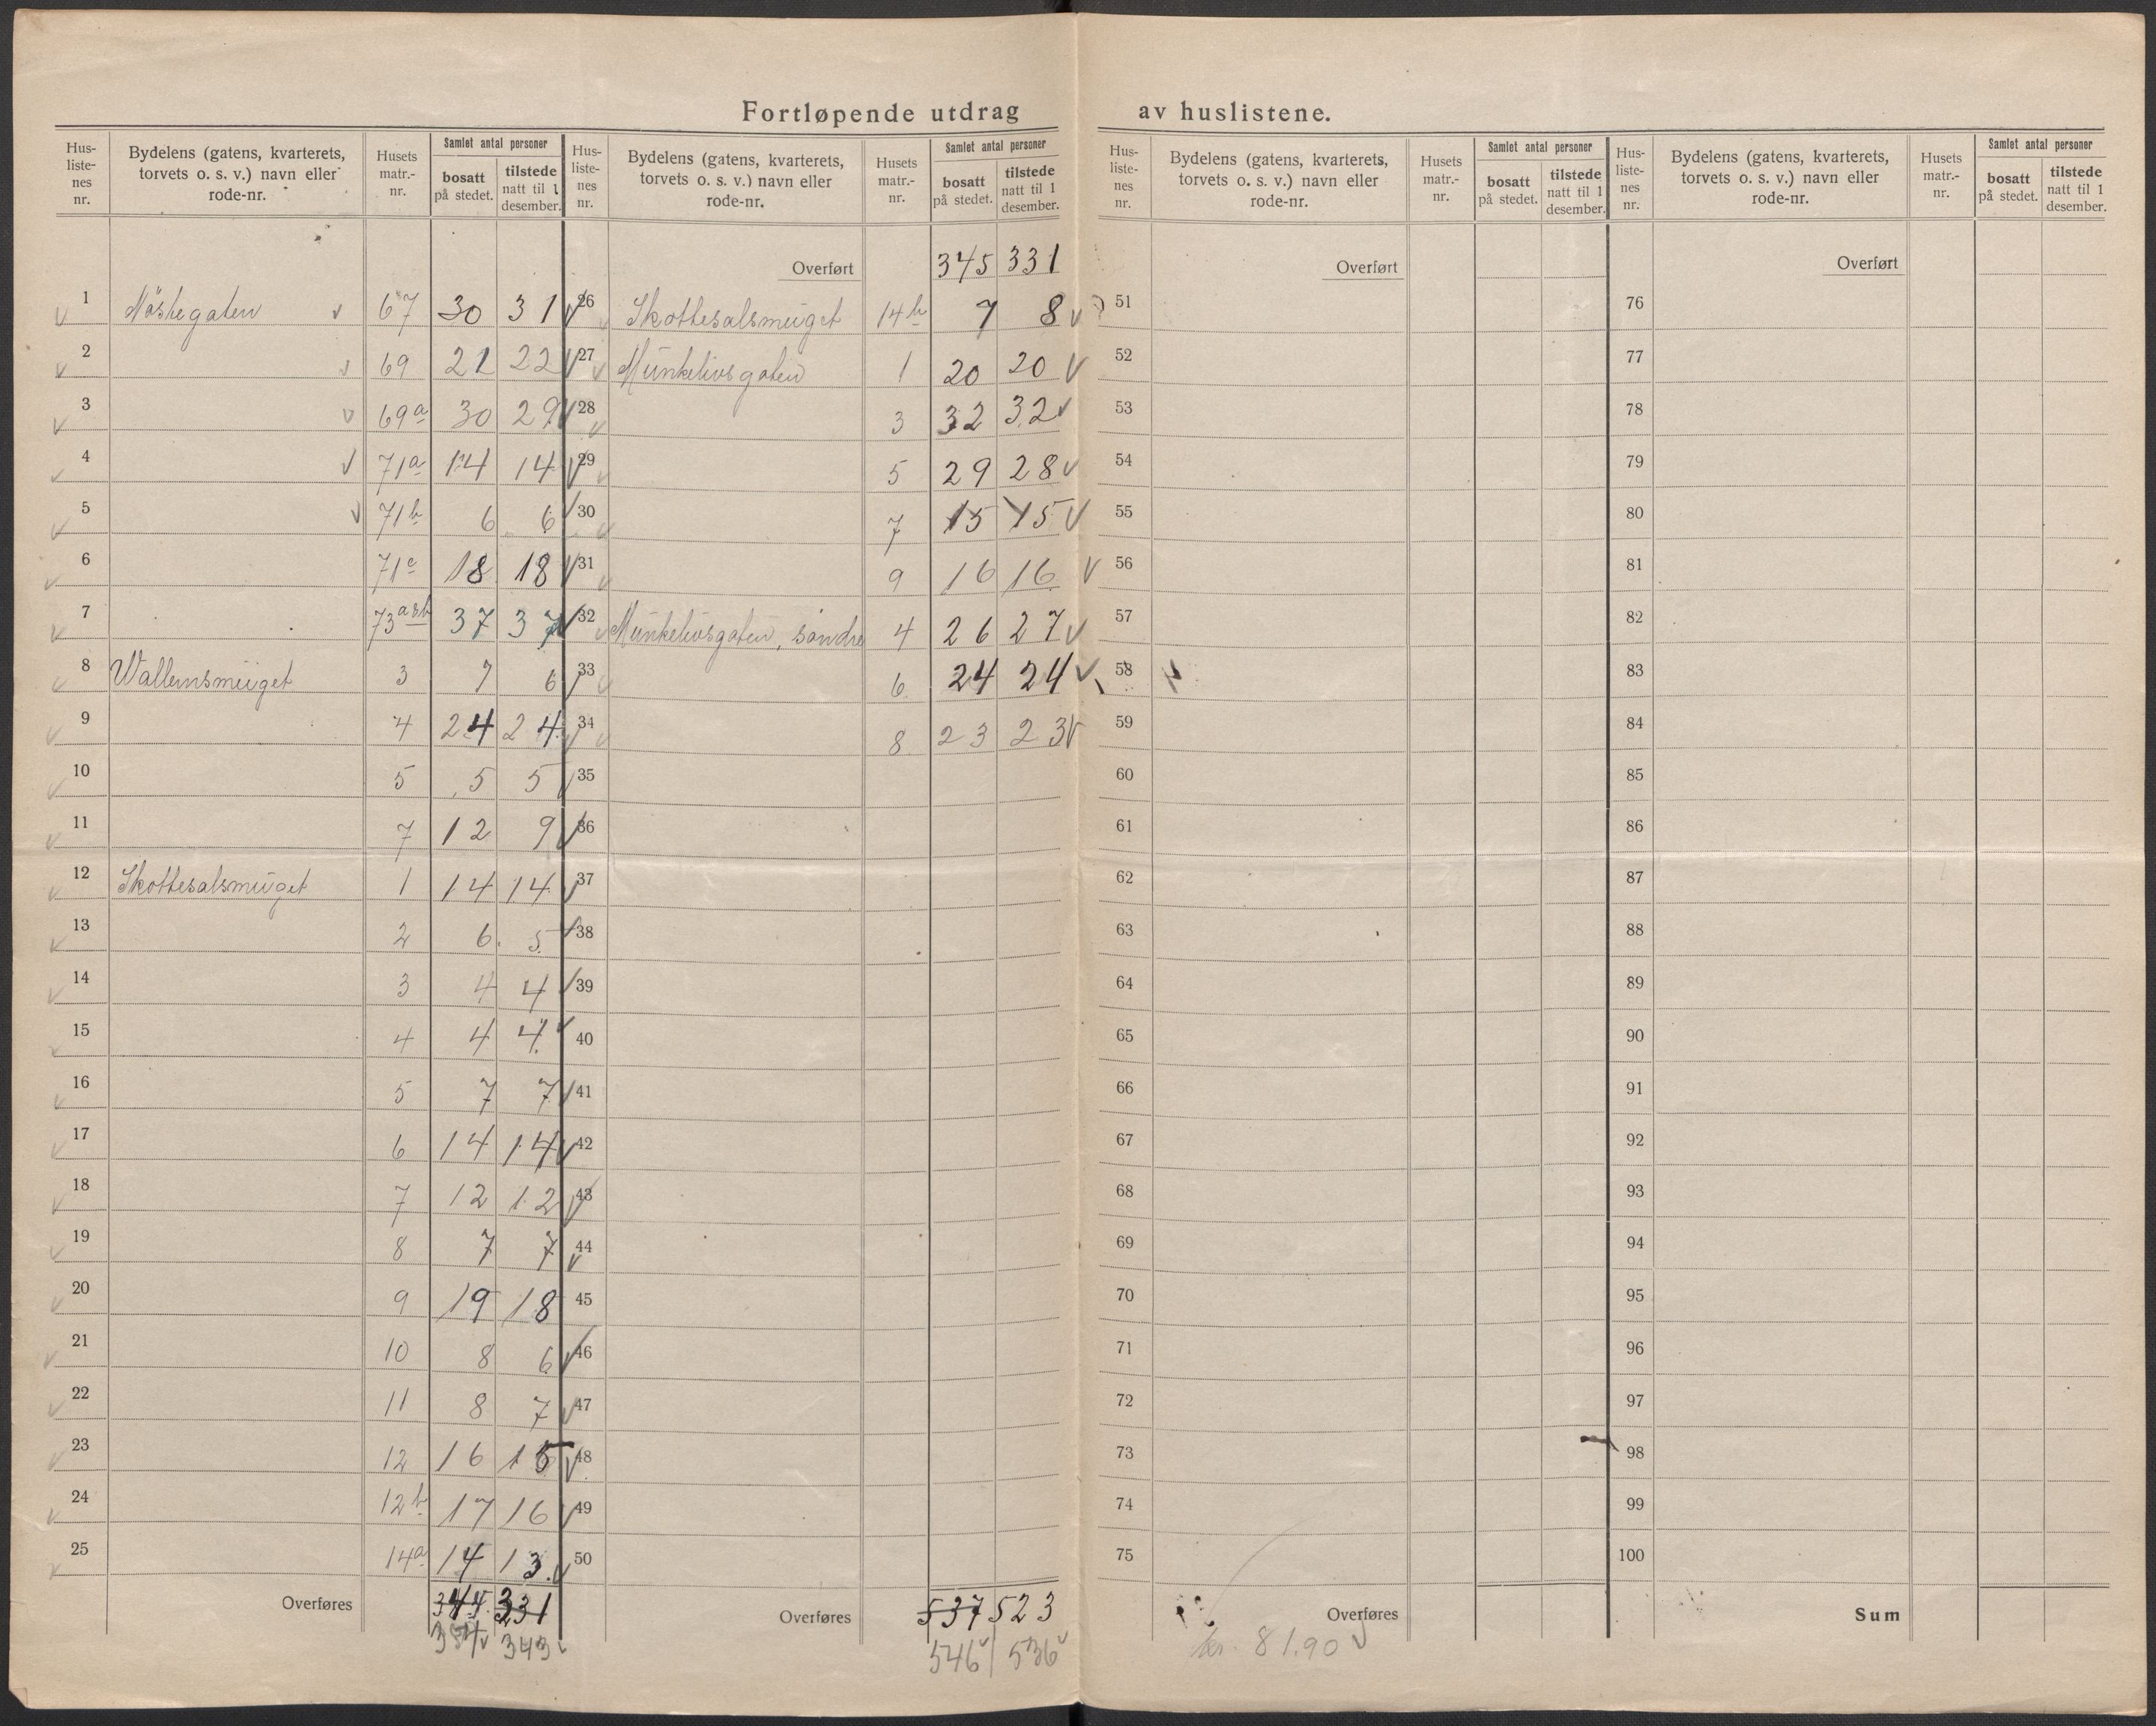 Fortløpende utdrag av huslistene.
Hus-liste-nes nr. | Bydelens (gatens, kvarterets, torvets o. s. v.) navn eller rode-nr. | Husets matr.-nr. | Samlet antal personer | bosatt på stedet. | tilstede natt til 1 desember.
1 Nöstegaten 67 30 31
2 69 21 22
3 69a 30 29
4 71a 14 14
5 71b 6 6
6 71c 18 18
7 73a&b 37 37
8 Wallemsmuget 3 7 6
9 4 24 24
10 5 5 5
11 7 12 9
12 Skottesalsmuget 1 14 14
13 2 6 5
14 3 4 4
15 4 4 4
16 5 7 7
17 6 14 14
18 7 12 12
19 8 7 7
20 9 19 18
21 10 8 6
22 11 8 7
23 12 16 15
24 12b 17 16
25 14a 14 13
Overføres 331
354 343
Hus-liste-nes nr. | Bydelens (gatens, kvarterets, torvets o. s. v.) navn eller rode-nr. | Husets matr.-nr. | Samlet antal personer | bosatt på stedet. | tilstede natt til 1 desember.
Overført 345 331
26 Skottesalsmuget 14b 7 8
27 Munkelivsgaten 1 20 20
28 3 32 32
29 5 29 28
30 7 15 15
31 9 16 16
32 Munkelivsgaten, söndre 4 26 27
33 6 24 24
34 8 23 23
35
36
37
38
39
40
41
42
43
44
45
46
47
48
49
50
Overføres 537 523
546 536
Hus-liste-nes nr. | Bydelens (gatens, kvarterets, torvets o. s. v.) navn eller rode-nr. | Husets matr.-nr. | Samlet antal personer | bosatt på stedet. | tilstede natt til 1 desember.
Overført
51
52
53
54
55
56
57
58
59
60
61
62
63
64
65
66
67
68
69
70
71
72
73
74
75
Overføres
kr. 81.90
Hus-liste-nes nr. | Bydelens (gatens, kvarterets, torvets o. s. v.) navn eller rode-nr. | Husets matr.-nr. | Samlet antal personer | bosatt på stedet. | tilstede natt til 1 desember.
Overført
76
77
78
79
80
81
82
83
84
85
86
87
88
89
90
91
92
93
94
95
96
97
98
99
100
Sum